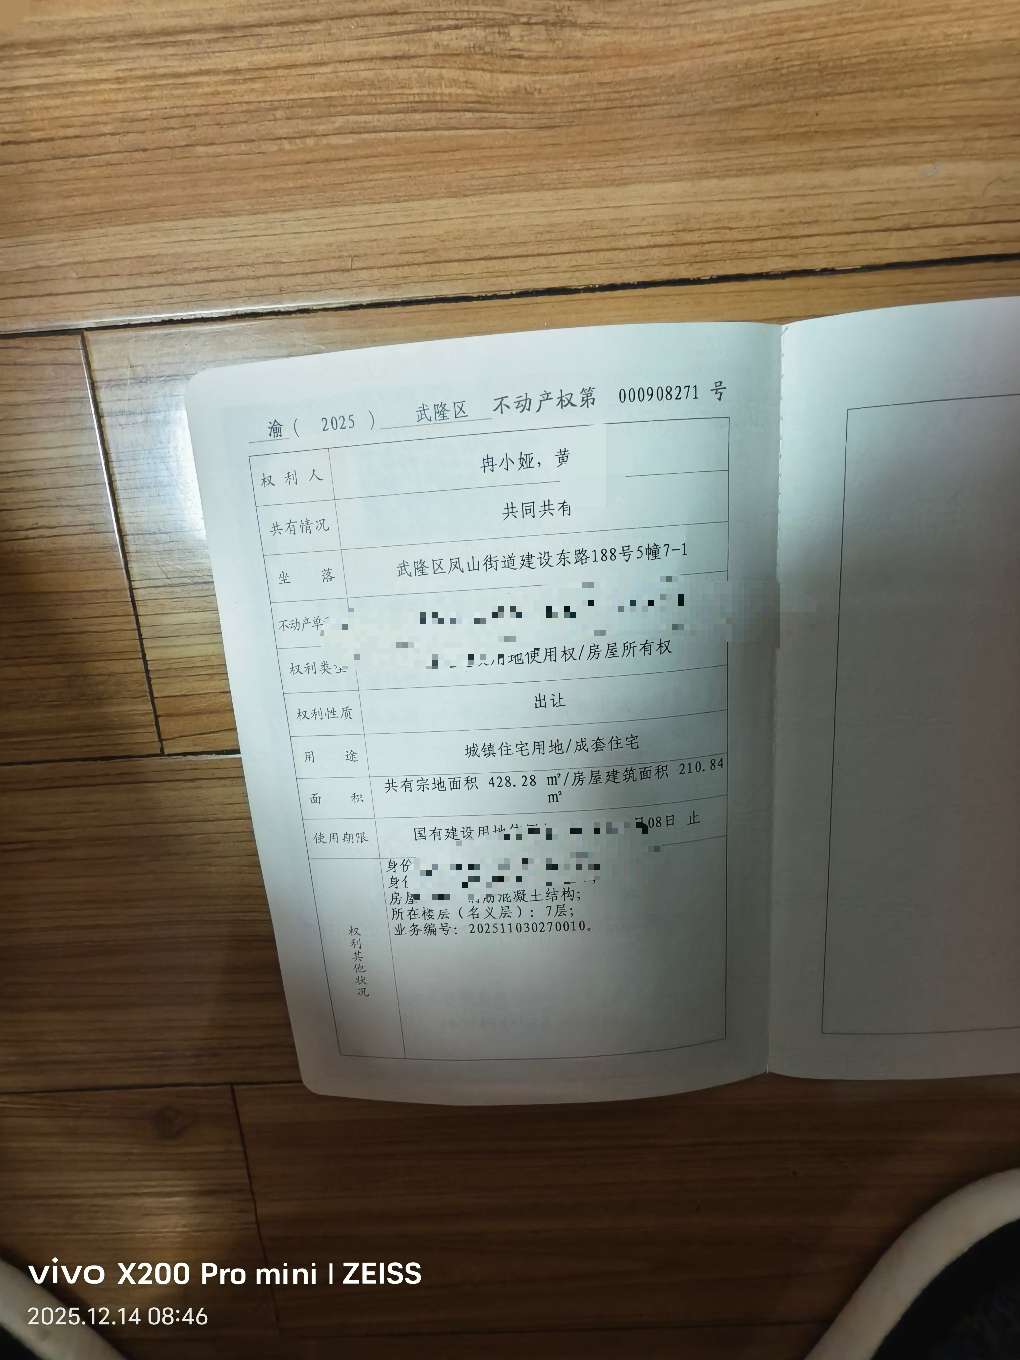 渝( 2025 ) 武隆区 不动产权第 000908271 号
权利人 冉小娅，黄
共有情况 共同共有
坐落 武隆区凤山街道建设东路188号5幢7-1
不动产单
权利类 用地使用权/房屋所有权
权利性质 出让
用途 城镇住宅用地/成套住宅
面积 共有宗地面积 428.28 ㎡/房屋建筑面积 210.84
㎡
使用期限 国有建设用地 08日 止
权利其他状况
身份
身
房 混凝土结构；
所在楼层（名义层）：7层；
业务编号：202511030270010。
vivo X200 Pro mini | ZEISS
2025.12.14 08:46